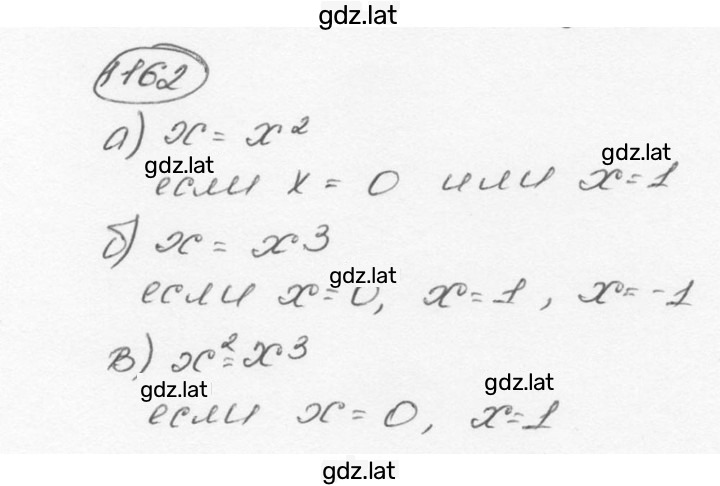 gdz.lat
1162
а) x = x²
gdz.lat
gdz.lat
если x = 0 или x = 1
б) x = x3
gdz.lat
если x = 0, x = 1, x = -1
в) x² = x3
gdz.lat
gdz.lat
если x = 0, x = 1
gdz.lat